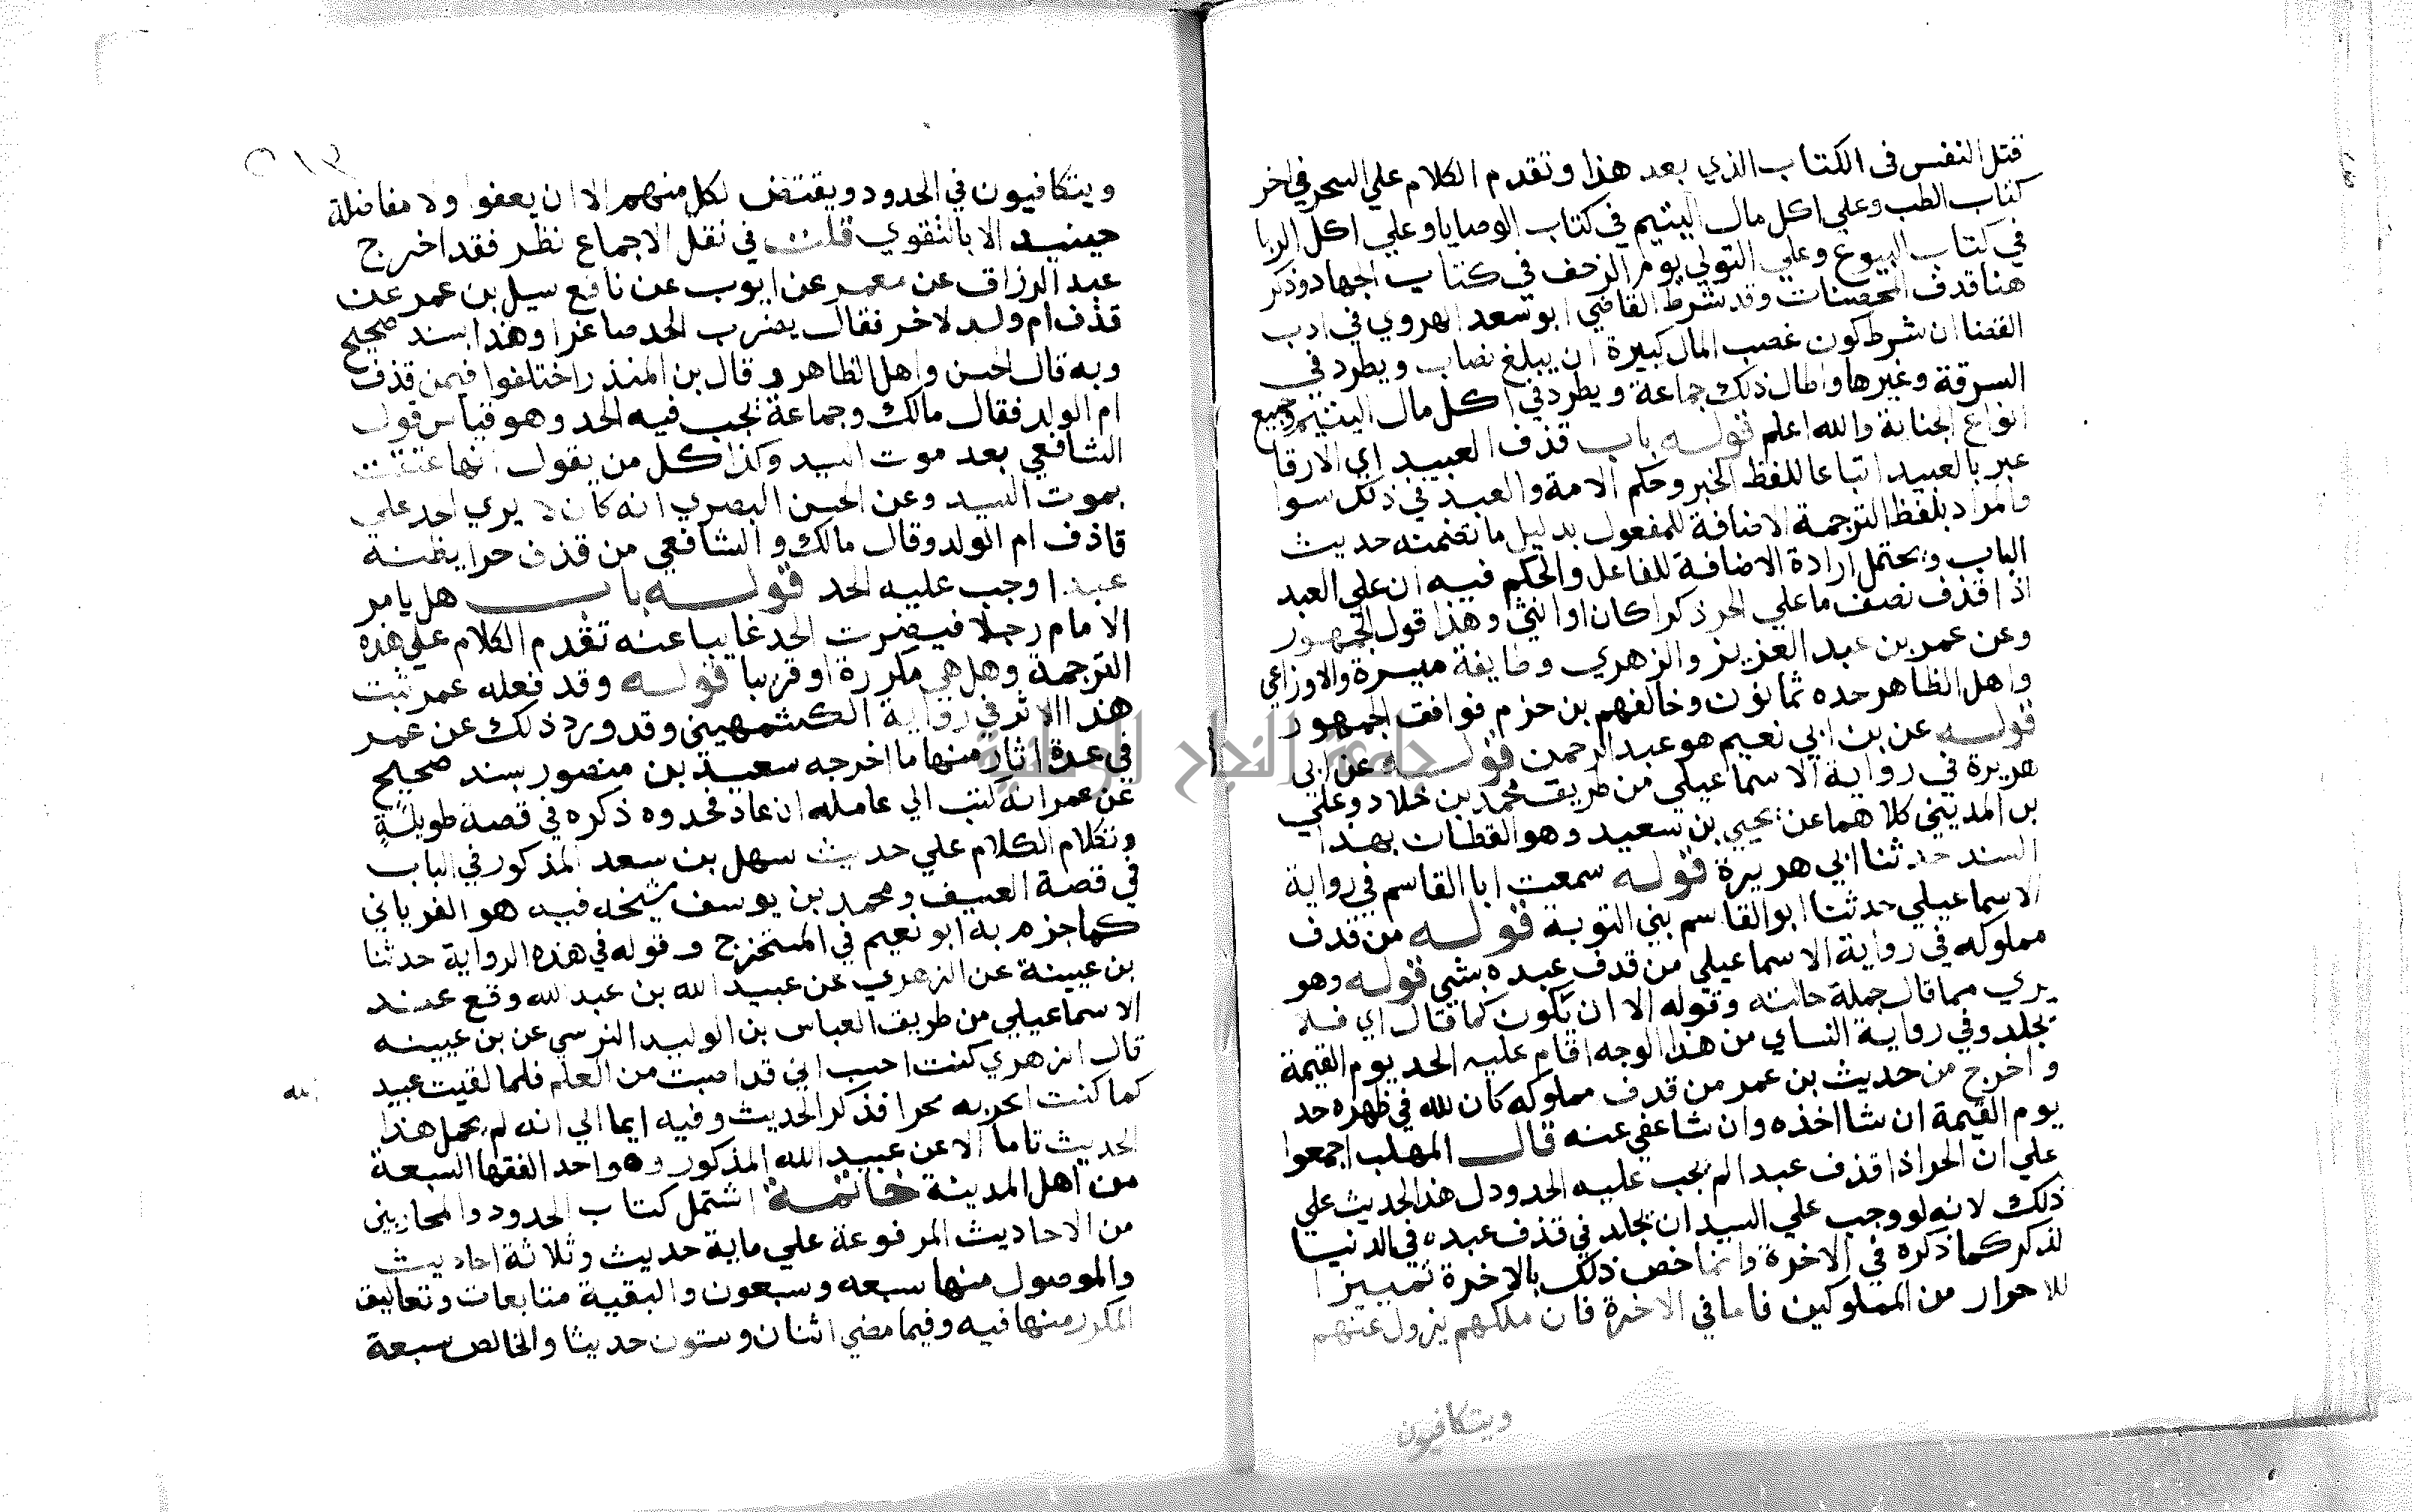 قتل النفس في الكتاب الذي بعد هذا وتقدم الكلام علي السحر في اخر
كتاب الطب وعلي اكل مال اليتيم في كتاب الوصايا وعلي اكل الربا
في كتاب البيوع وعلي التولي يوم الزحف في كتاب الجهاد وذكر
هنا قذف المحصنات وقد شرط القاضي ابو سعد الهروي في ادب
القضا ان شرط كون غصب المال كبيرة ان يبلغ نصاب ويطرد في
السرقة وغيرها واطال ذلك جماعة ويطرد في اكل مال اليتيم وجميع
انواع الجناية والله اعلم قوله باب قذف العبيد اي الارقا
عبر بالعبيد اتباعا للفظ الخبر وحكم الامة والعبد في ذلك سوا
والمراد بلفظ الترجمة الاضافة للمفعول بدليل ما تضمنه حديث
الباب ويحتمل ارادة الاضافة للفاعل والحكم فيه ان علي العبد
اذا قذف نصف ما علي الحر ذكرا كان او انثي وهذا قول الجمهور
وعن عمر بن عبد العزيز والزهري وطايفة ميسرة والاوزاعي
واهل الظاهر حده ثمانون وخالفهم بن حزم فوافق الجمهور
قوله عن بن ابي نعيم هو عبد الرحمن قوله عن ابي
هريرة في رواية الاسماعيلي من طريق محمد بن خلاد وعلي
بن المديني كلاهما عن يحيي بن سعيد وهو القطان بهذا
السند حدثنا ابي هريرة قوله سمعت ابا القاسم في رواية
الاسماعيلي حدثنا ابو القاسم بني التوبة قوله من قذف
مملوكه في رواية الاسماعيلي من قذف عبده بشي قوله وهو
بري مما قال جملة حالية وقوله الا ان يكون كما قال اي فلا
يجلد وفي رواية النساي من هذا الوجه اقام عليه الحد يوم القيمة
واخرج من حديث بن عمر من قذف مملوكه كان لله في ظهره حد
يوم القيمة ان شا اخذه وان شا عفي عنه قال المهلب اجمعوا
علي ان الحر اذا قذف عبدا لم يجب عليه الحد ودل هذا الحديث علي
ذلك لانه لو وجب علي السيد ان يجلد في قذف عبده في الدنيا
لذكر كما ذكره في الاخرة وانما خص ذلك بالاخرة تمييزا
للاحرار من المملوكين فاما في الاخرة فان ملكهم يزول عنهم
ويتكافيون
ويتكافيون في الحدود ويقتض لكل منهم الا ان يعفوا ولا مفاضلة
حينيد الا بالتقوي قلت في نقل الاجماع نظر فقد اخرج
عبد الرزاق عن معمر عن ايوب عن نافع سيل بن عمر عن
قذف ام ولد لاخر فقال يضرب الحد صاغرا وهذا بسند صحيح
وبه قال الحسن واهل الظاهر و قال بن المنذر اختلفوا فيمن قذف
ام الولد فقال مالك وجماعة يجب فيه الحد وهو قياس قول
الشافعي بعد موت السيد وكذا كل من يقول انها عتقت
بموت السيد وعن الحسن البصري انه كان لا يري الحد علي
قاذف ام الولد وقال مالك والشافعي من قذف حرا يظنه
عبدا وجب عليه الحد قوله باب هل يامر
الامام رجلا فيضرب الحد غايبا عنه تقدم الكلام علي هذه
الترجمة وهل هي مكررة او قريبا قوله وقد فعله عمر ثبت
هذا الاثر في رواية الكشمهيني وقد ورد ذلك عن عمر
في عدة اثار منها ما اخرجه سعيد بن منصور بسند صحيح
عن عمر انه كتب الي عامله ان عاد فحدوه ذكره في قصة طويلة
وتكلام الكلام علي حديث سهل بن سعد المذكور في الباب
في قصة العسيف ومحمد بن يوسف شيخه فيه هو الفريابي
كما جزم به ابو نعيم في المستخرج وقوله في هذه الرواية حدثنا
بن عيينة عن الزهري عن عبيد الله بن عبد الله وقع عند
الاسماعيلي من طريق العباس بن الوليد النرسي عن بن عيينه
قال الزهري كنت احسب اني قد اصبت من العلم فلما لقيت عبيد الله
كما كنت اتجر به بحرا فذكر الحديث وفيه ايما الي انه لم يحمل هذا
الحديث تاما الا عن عبيد الله المذكور وهو احد الفقها السبعة
من اهل المدينة خاتمة اشتمل كتاب الحدود والمحاربين
من الاحاديث المرفوعة علي ماية حديث وثلاثة احاديث
والموصول منها سبعه وسبعون والبقية متابعات وتعاليق
المكرر منها فيه وفيما مضي اثنان وستون حديثا والخالص سبعة
جامعة النجاح الوطنية